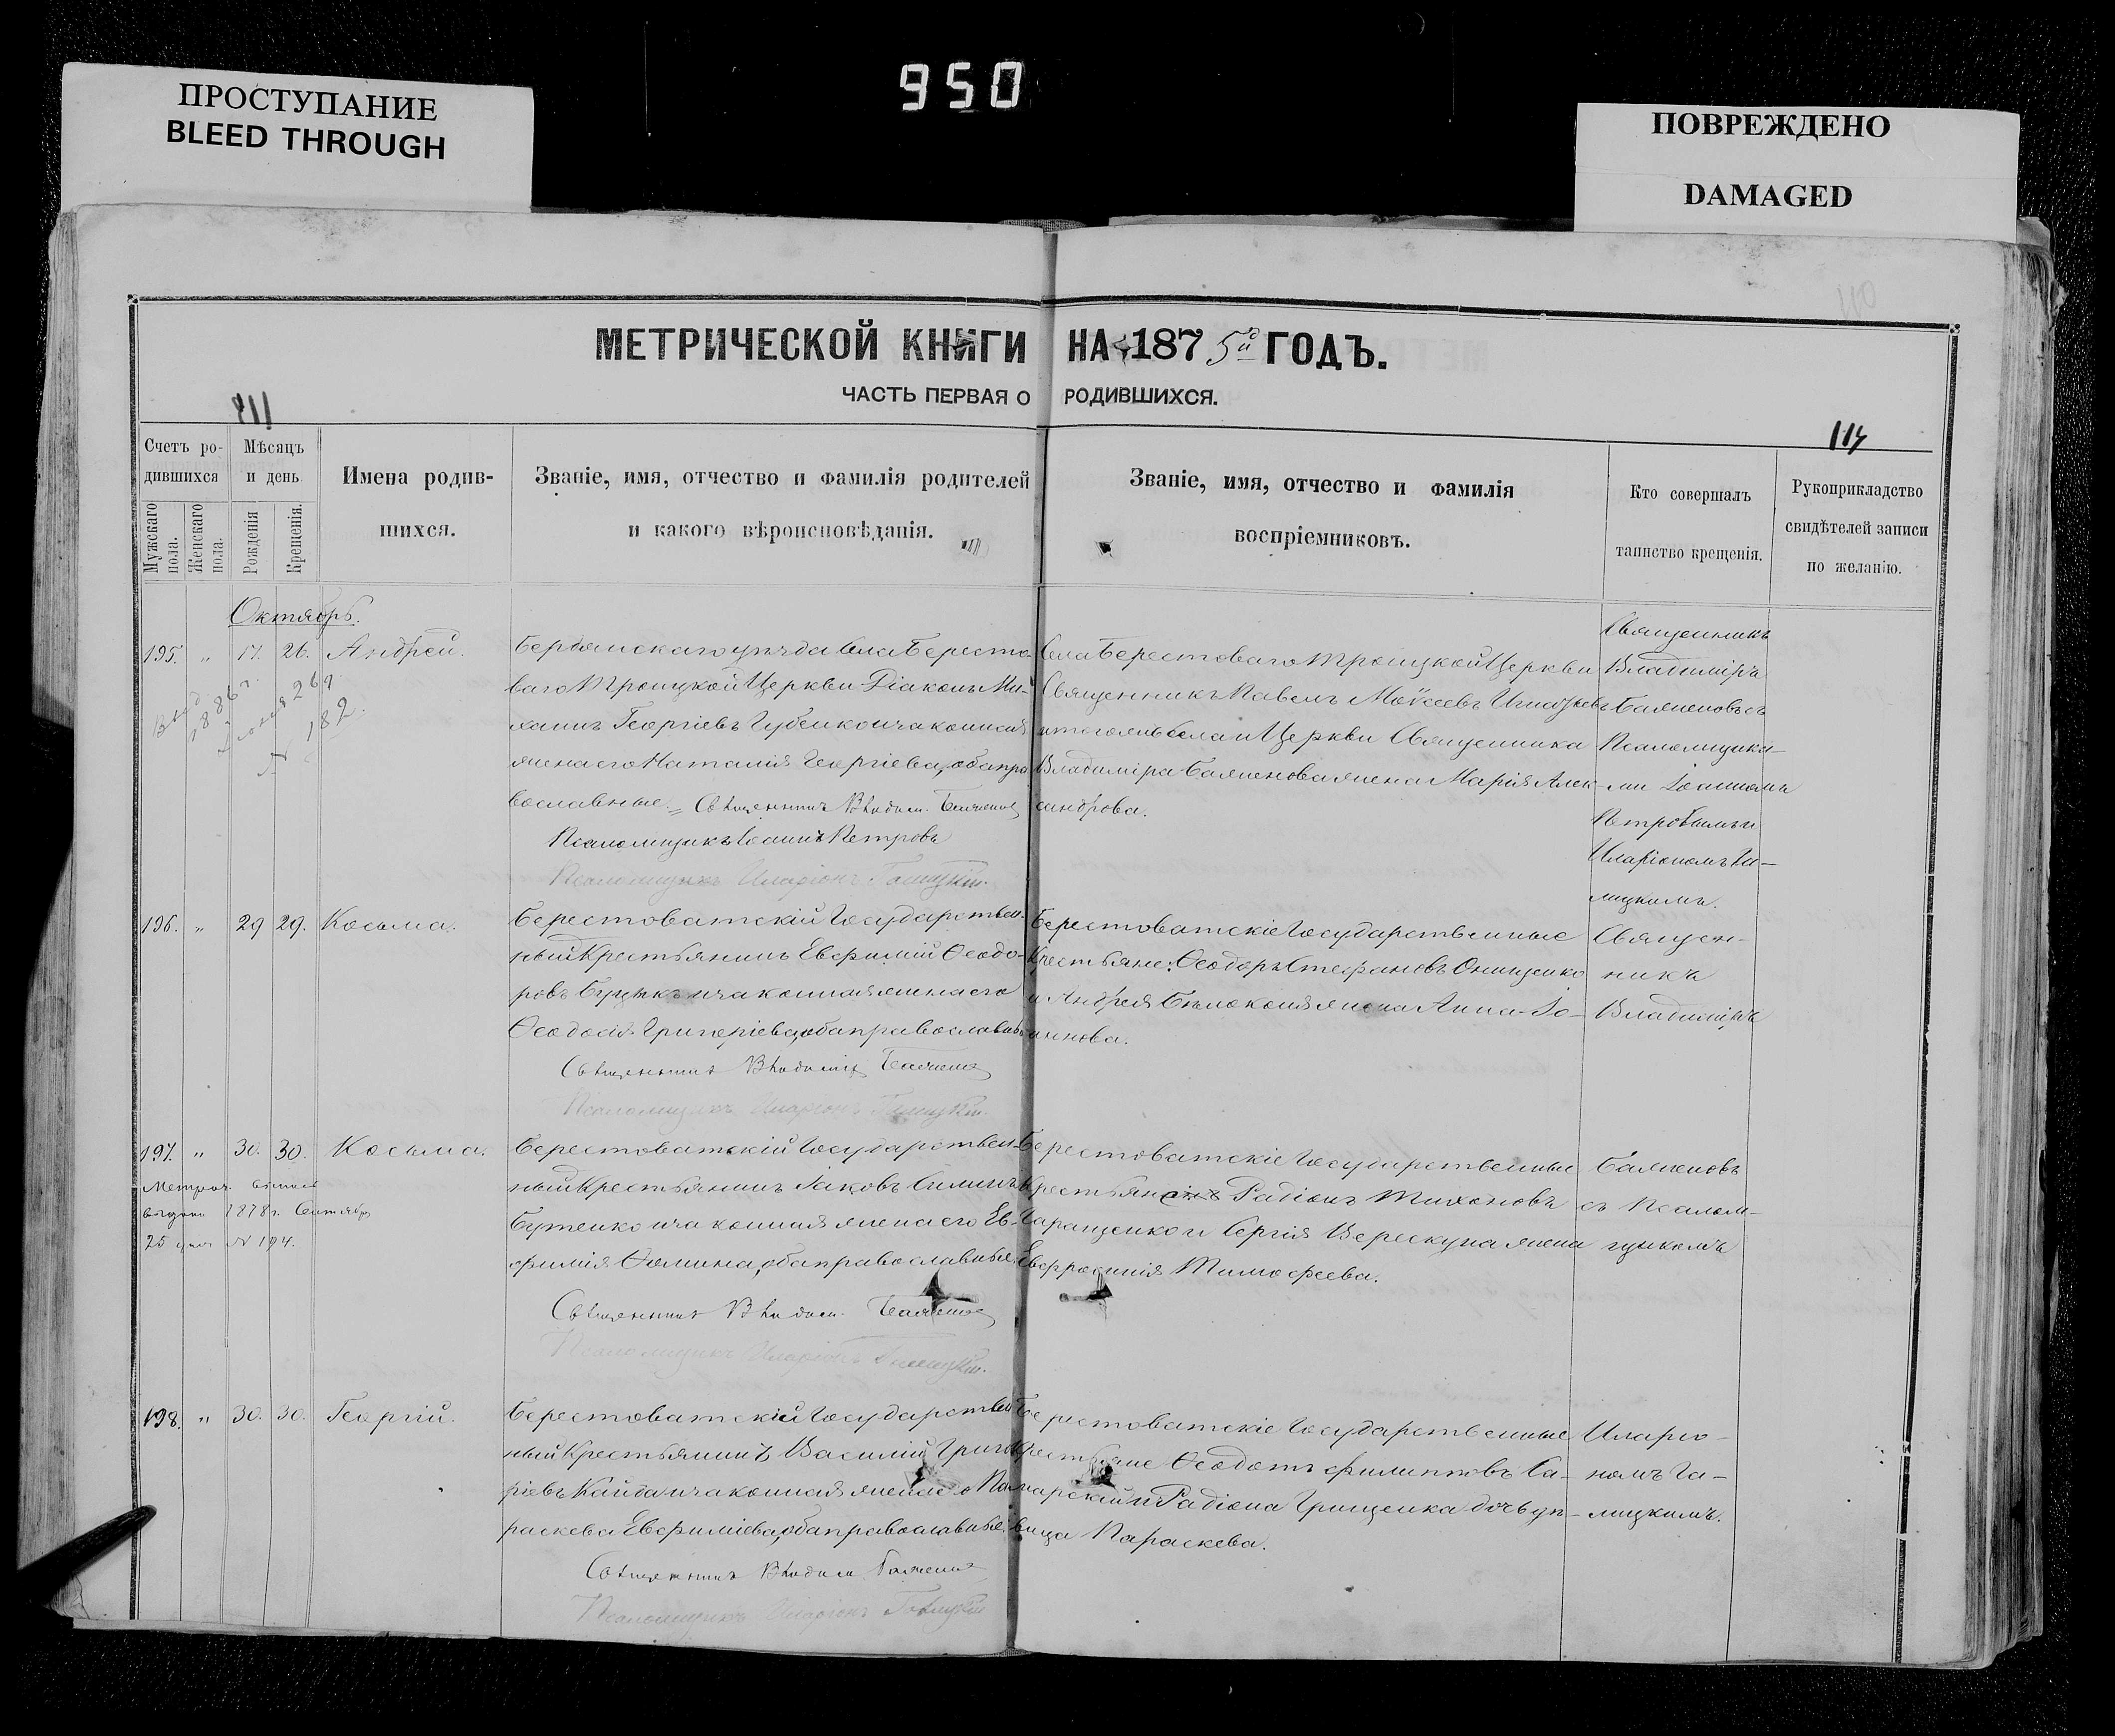 950
ПРОСТУПАНИЕ
BLEED THROUGH
ПОВРЕЖДЕНО
DAMAGED
МЕТРИЧЕСКОЙ КНИГИ НА 1875й ГОДЪ.
ЧАСТЬ ПЕРВАЯ О РОДИВШИХСЯ.
114
Счетъ ро-
дившихся
Мужскаго пола.
Женскаго пола.
Мѣсяцъ
и день
Рожденія
Крещенія.
Имена родив-
шихся.
Званіе, имя, отчество и фамилія родителей
и какого вѣроисповѣданія.
Званіе, имя, отчество и фамилія
воспріемниковъ.
Кто совершалъ
таинство крещенія.
Рукоприкладство
свидѣтелей записи
по желанію.
Октябрь.
195. " 17. 26. Андрей.
1886 г.
№ 182.
Бердянскаго уѣзда Села Бересто-
ваго Троицкой Церкви Діаконъ Ми-
хаилъ Георгіевъ Губенко и законная
жена его Наталія Георгіева, оба пра-
вославные. Священникъ Владим. Баженов
Псаломщикъ Іоаннъ Петровъ
Псаломщикъ Иларіонъ Галицкій.
Села Берестоваго Троицкой Церкви
Священникъ Павелъ Моѵсеевъ
и тогоже села и Церкви Священника
Владиміра Баженова жена Марія Алек-
сандрова.
Священникъ
Владиміръ
Баженовъ съ
Псаломщика-
ми Іоанномъ
Петровымъ и
Иларіономъ Га-
лицкимъ.
196. " 29 29. Косьма.
Берестоватскій Государствен-
ный Крестьянинъ Евфимій Ѳеодо-
ровъ и законная жена его
Ѳеодосія Григоріева, оба православные
Священникъ Владиміръ Баженов
Псаломщикъ Иларіонъ Галицкій.
Берестоватскіе Государственные
Крестьяне: Ѳеодоръ Стефановъ Онищенко
и Андрея Бѣлоконя жена Анна Іо-
аннова.
Священ-
никъ
Владиміръ
197. " 30. 30. Косьма.
выдана 1878 г. Сентября
25 дня № 194.
Берестоватскій Государствен-
ный Крестьянинъ Іаковъ Силинъ
Бутенко и законная жена его Ев-
фимія Ѳомина, оба православные.
Священникъ Владим. Баженов
Псаломщикъ Иларіонъ Галицкій.
Берестоватскіе Государственные
Крестьян Радіонъ Тихоновъ
Таращенко и Сергія Верескуна жена
Евфросинія Тимофеева.
Баженовъ
съ Псалом-
щикомъ
198. " 30. 30. Георгій.
Берестоватскій Государствен
ный Крестьянинъ Василій Григо
ріевъ Кайда и законная жена его Па
раскева Евфиміева, оба православные.
Священникъ Владим. Баженов
Псаломщикъ Иларіонъ Галицкій
Берестоватскіе Государственные
Крестьяне Ѳеодотъ Филипповъ Са-
марскій и Радіона Грищенка дочь дѣ-
вица Параскева.
Иларіо-
номъ Га-
лицкимъ.